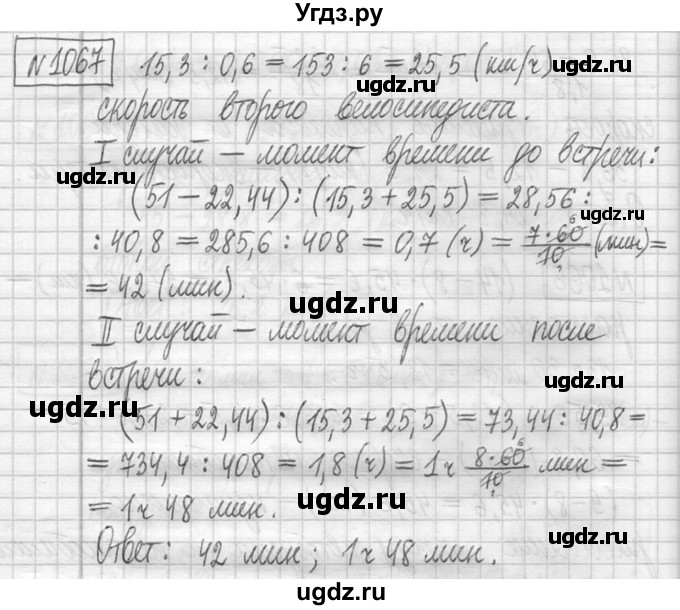 Угдз.ру
№1067 15,3 : 0,6 = 153 : 6 = 25,5 (км/ч)
ugdz.ru
ugdz.ru
скорость второго велосипедиста.
I случай — момент времени до встречи:
ugdz.ru
(51 − 22,44) : (15,3 + 25,5) = 28,56 :
ugdz.ru
: 40,8 = 285,6 : 408 = 0,7 (ч) = 7·60/10 6 (мин) =
= 42 (мин).
ugdz.ru
II случай — момент времени после
встречи :
ugdz.ru
ugdz.ru
(51 + 22,44) : (15,3 + 25,5) = 73,44 : 40,8 =
= 734,4 : 408 = 1,8 (ч) = 1 ч 8·60/10 6 мин =
= 1 ч 48 мин.
ugdz.ru
Ответ: 42 мин ; 1 ч 48 мин.
ugdz.ru
ugdz.ru